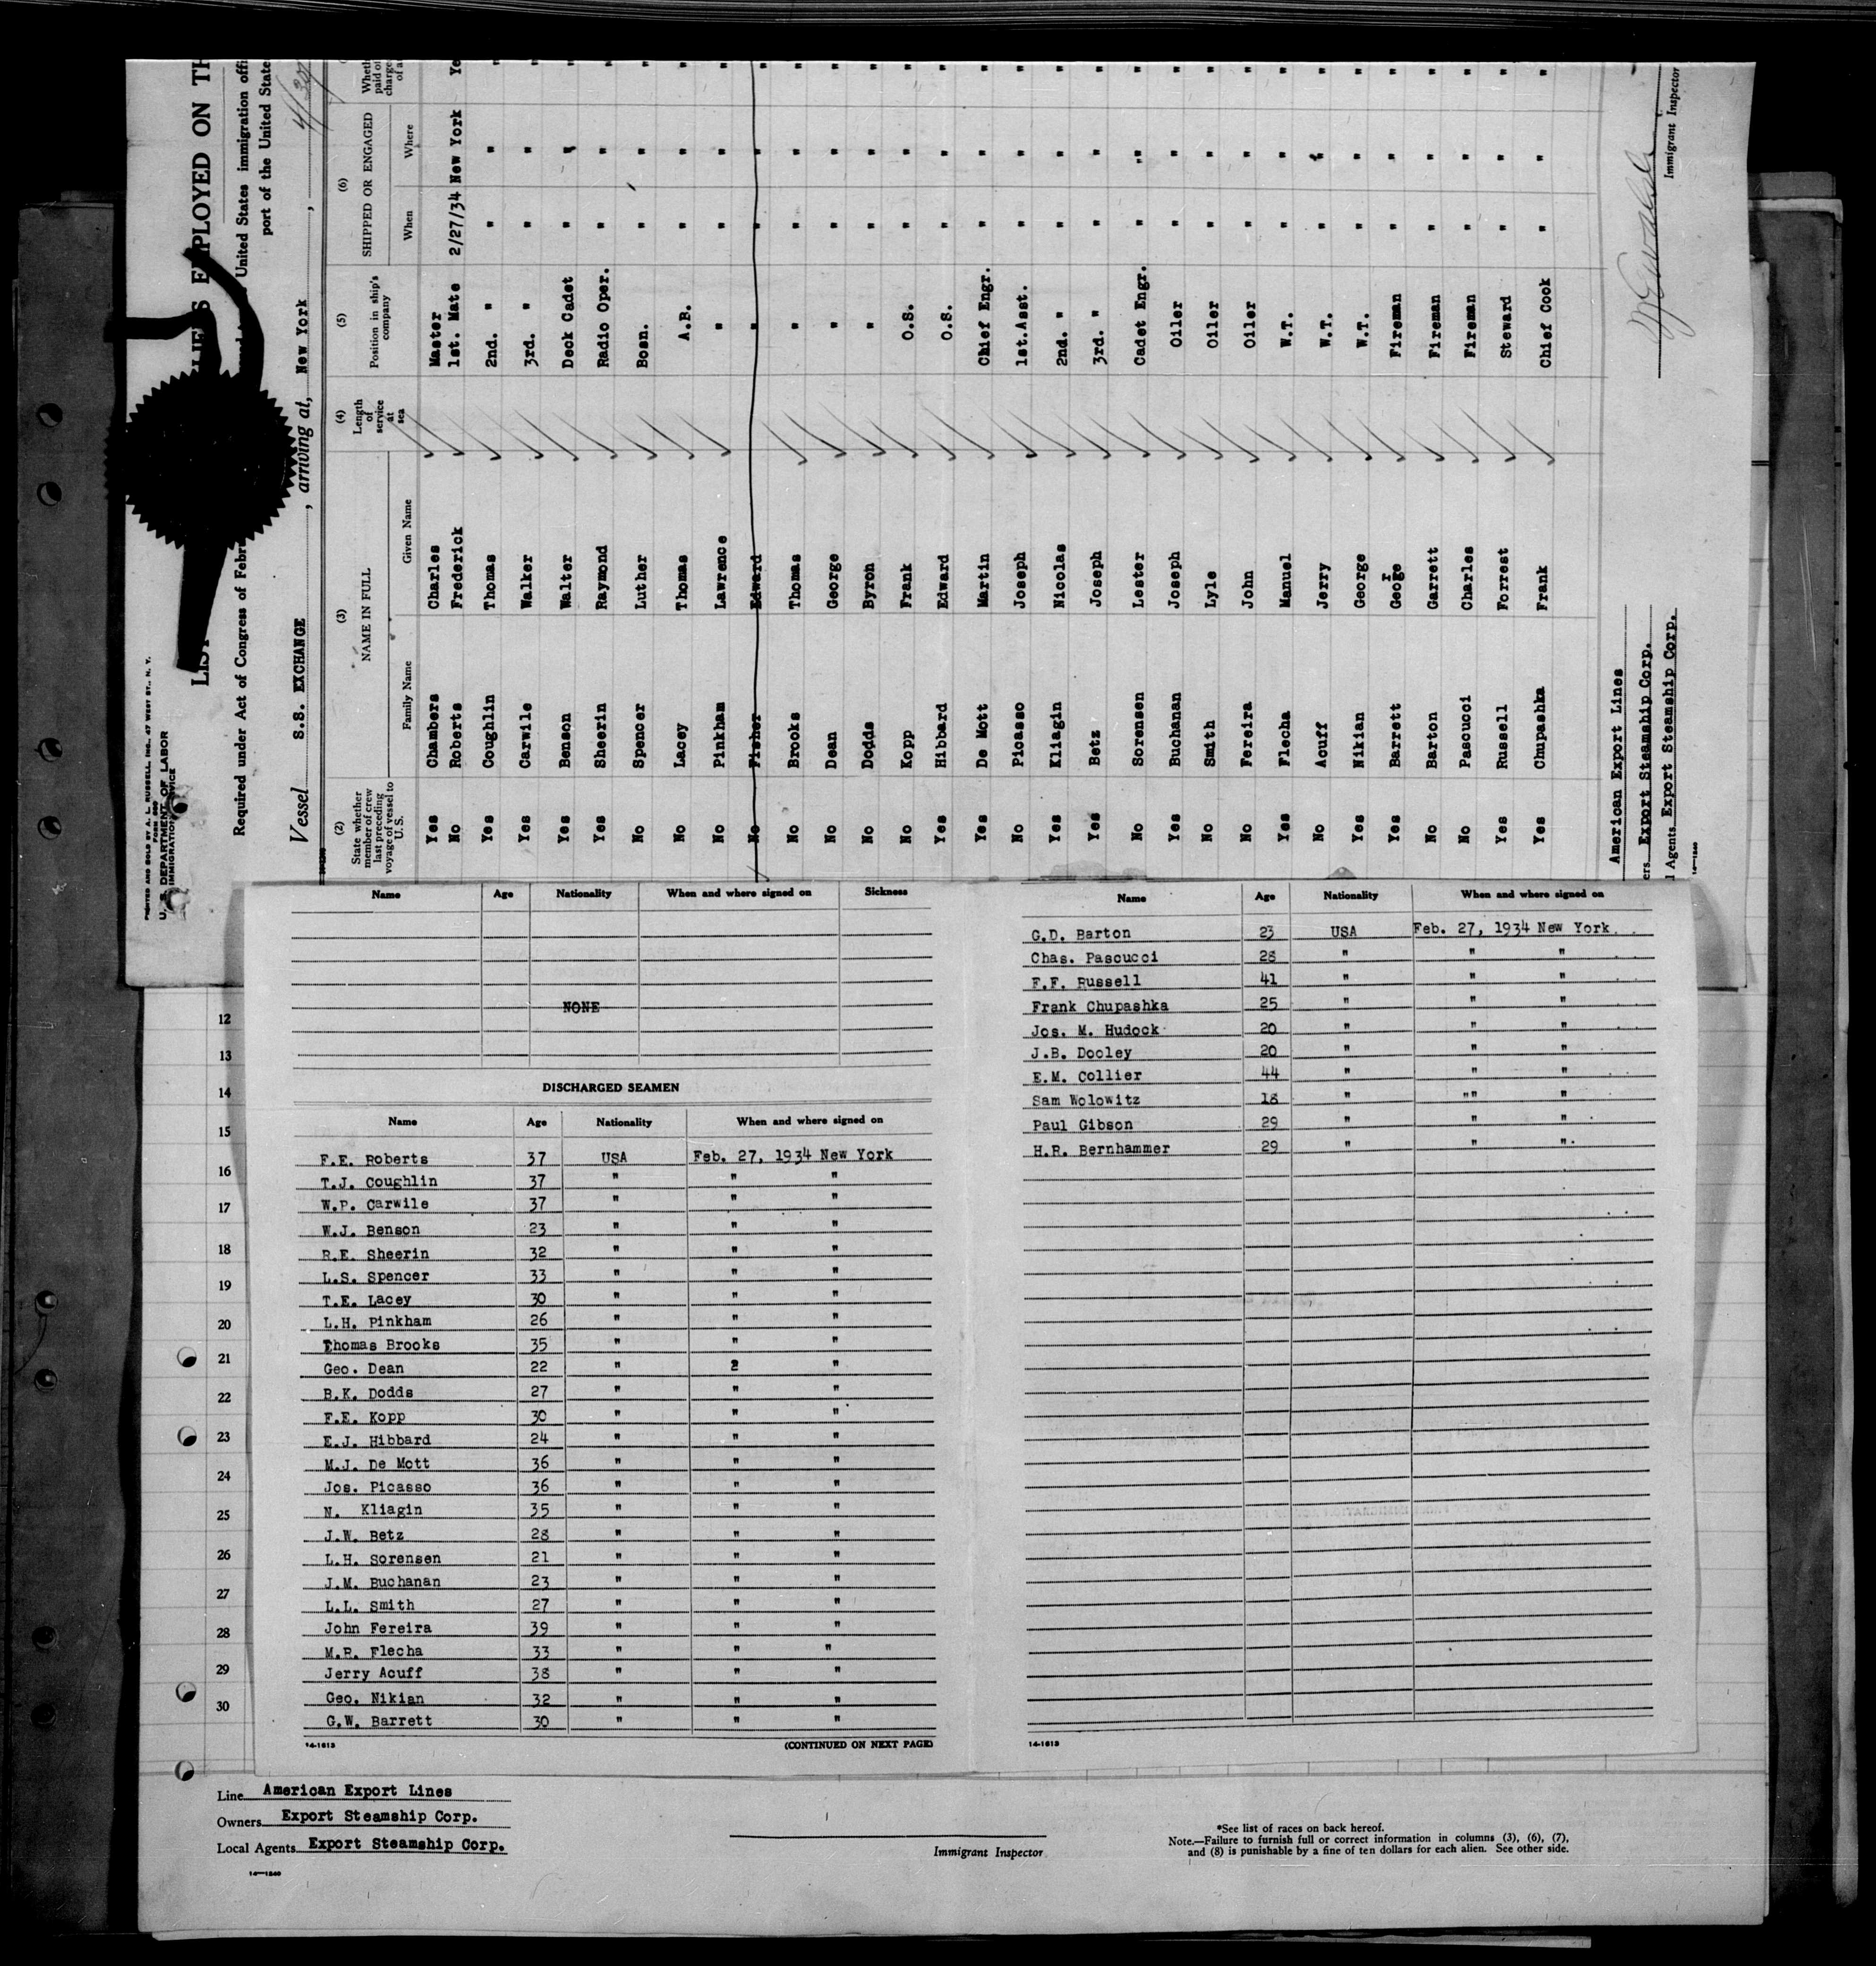 PRINTED AND SOLD BY A. L. RUSSELL, INC., 47 WEST ST., N. Y.
U. S. DEPARTMENT OF LABOR
IMMIGRATION SERVICE
LIST ALIENS EMPLOYED ON TH
Required under Act of Congress of Febr United States immigration offi
port of the United State
Vessel S.S. EXCHANGE, arriving at, New York,
(2) (3) (4) (5) (6)
State whether member of crew last preceding voyage of vessel to U.S. NAME IN FULL Length of service at sea Position in ship's company SHIPPED OR ENGAGED Wheth paid of charge of a
Family Name Given Name When Where
Yes Chambers Charles Master
No Roberts Frederick 1st. Mate 2/27/34 New York Ye
Yes Coughlin Thomas 2nd. " " " "
Yes Carwile Walker 3rd. " " " "
Yes Benson Walter Deck Cadet " " "
Yes Sheerin Raymond Radio Oper. " " "
No Spencer Luther Bosn. " " "
No Lacey Thomas A.B. " " "
No Pinkham Lawrence " " " "
No Fisher Edward " " " "
No Brooks Thomas " " " "
No Dean George " " " "
No Dodds Byron " " " "
No Kopp Frank O.S. " " "
Yes Hibbard Edward O.S. " " "
Yes De Mott Martin Chief Engr. " " "
No Picasso Joseph 1st.Asst. " " "
Yes Kliagin Nicolas 2nd. " " " "
Yes Betz Joseph 3rd. " " " "
No Sorensen Lester Cadet Engr. " " "
Yes Buchanan Joseph Oiler " " "
No Smith Lyle Oiler " " "
No Fereira John Oiler " " "
Yes Flecha Manuel W.T. " " "
No Acuff Jerry W.T. " " "
Yes Nikian George W.T. " " "
Yes Barrett Geoge r Fireman " " "
No Barton Garrett Fireman " " "
No Pascucci Charles Fireman " " "
Yes Russell Forrest Steward " " "
Yes Chupashka Frank Chief Cook " " "
American Export Lines
ers Export Steamship Corp.
l Agents Export Steamship Corp.
14-1240
Immigrant Inspector
Name Age Nationality When and where signed on Sickness
NONE
DISCHARGED SEAMEN
Name Age Nationality When and where signed on
F.E. Roberts 37 USA Feb. 27, 1934 New York
T.J. Coughlin 37 " " "
W.P. Carwile 37 " " "
W.J. Benson 23 " " "
R.E. Sheerin 32 " " "
L.S. Spencer 33 " " "
T.E. Lacey 30 " " "
L.H. Pinkham 26 " " "
Thomas Brooks 35 " " "
Geo. Dean 22 " 2 "
B.K. Dodds 27 " " "
F.E. Kopp 30 " " "
E.J. Hibbard 24 " " "
M.J. De Mott 36 " " "
Jos. Picasso 36 " " "
N. Kliagin 35 " " "
J.W. Betz 28 " " "
L.H. Sorensen 21 " " "
J.M. Buchanan 23 " " "
L.L. Smith 27 " " "
John Fereira 39 " " "
M.R. Flecha 33 " " "
Jerry Acuff 38 " " "
Geo. Nikian 32 " " "
G.W. Barrett 30 " " "
14-1613 (CONTINUED ON NEXT PAGE)
Name Age Nationality When and where signed on
G.D. Barton 23 USA Feb. 27, 1934 New York
Chas. Pascucci 28 " " "
F.F. Russell 41 " " "
Frank Chupashka 25 " " "
Jos. M. Hudock 20 " " "
J.B. Dooley 20 " " "
E.M. Collier 44 " " "
Sam Wolowitz 18 " "" "
Paul Gibson 29 " " "
H.R. Bernhammer 29 " " "
14-1613
12
13
14
15
16
17
18
19
20
21
22
23
24
25
26
27
28
29
30
Line American Export Lines
Owners Export Steamship Corp.
Local Agents Export Steamship Corp.
14-1240
Immigrant Inspector
*See list of races on back hereof.
Note.—Failure to furnish full or correct information in columns (3), (6), (7),
and (8) is punishable by a fine of ten dollars for each alien. See other side.